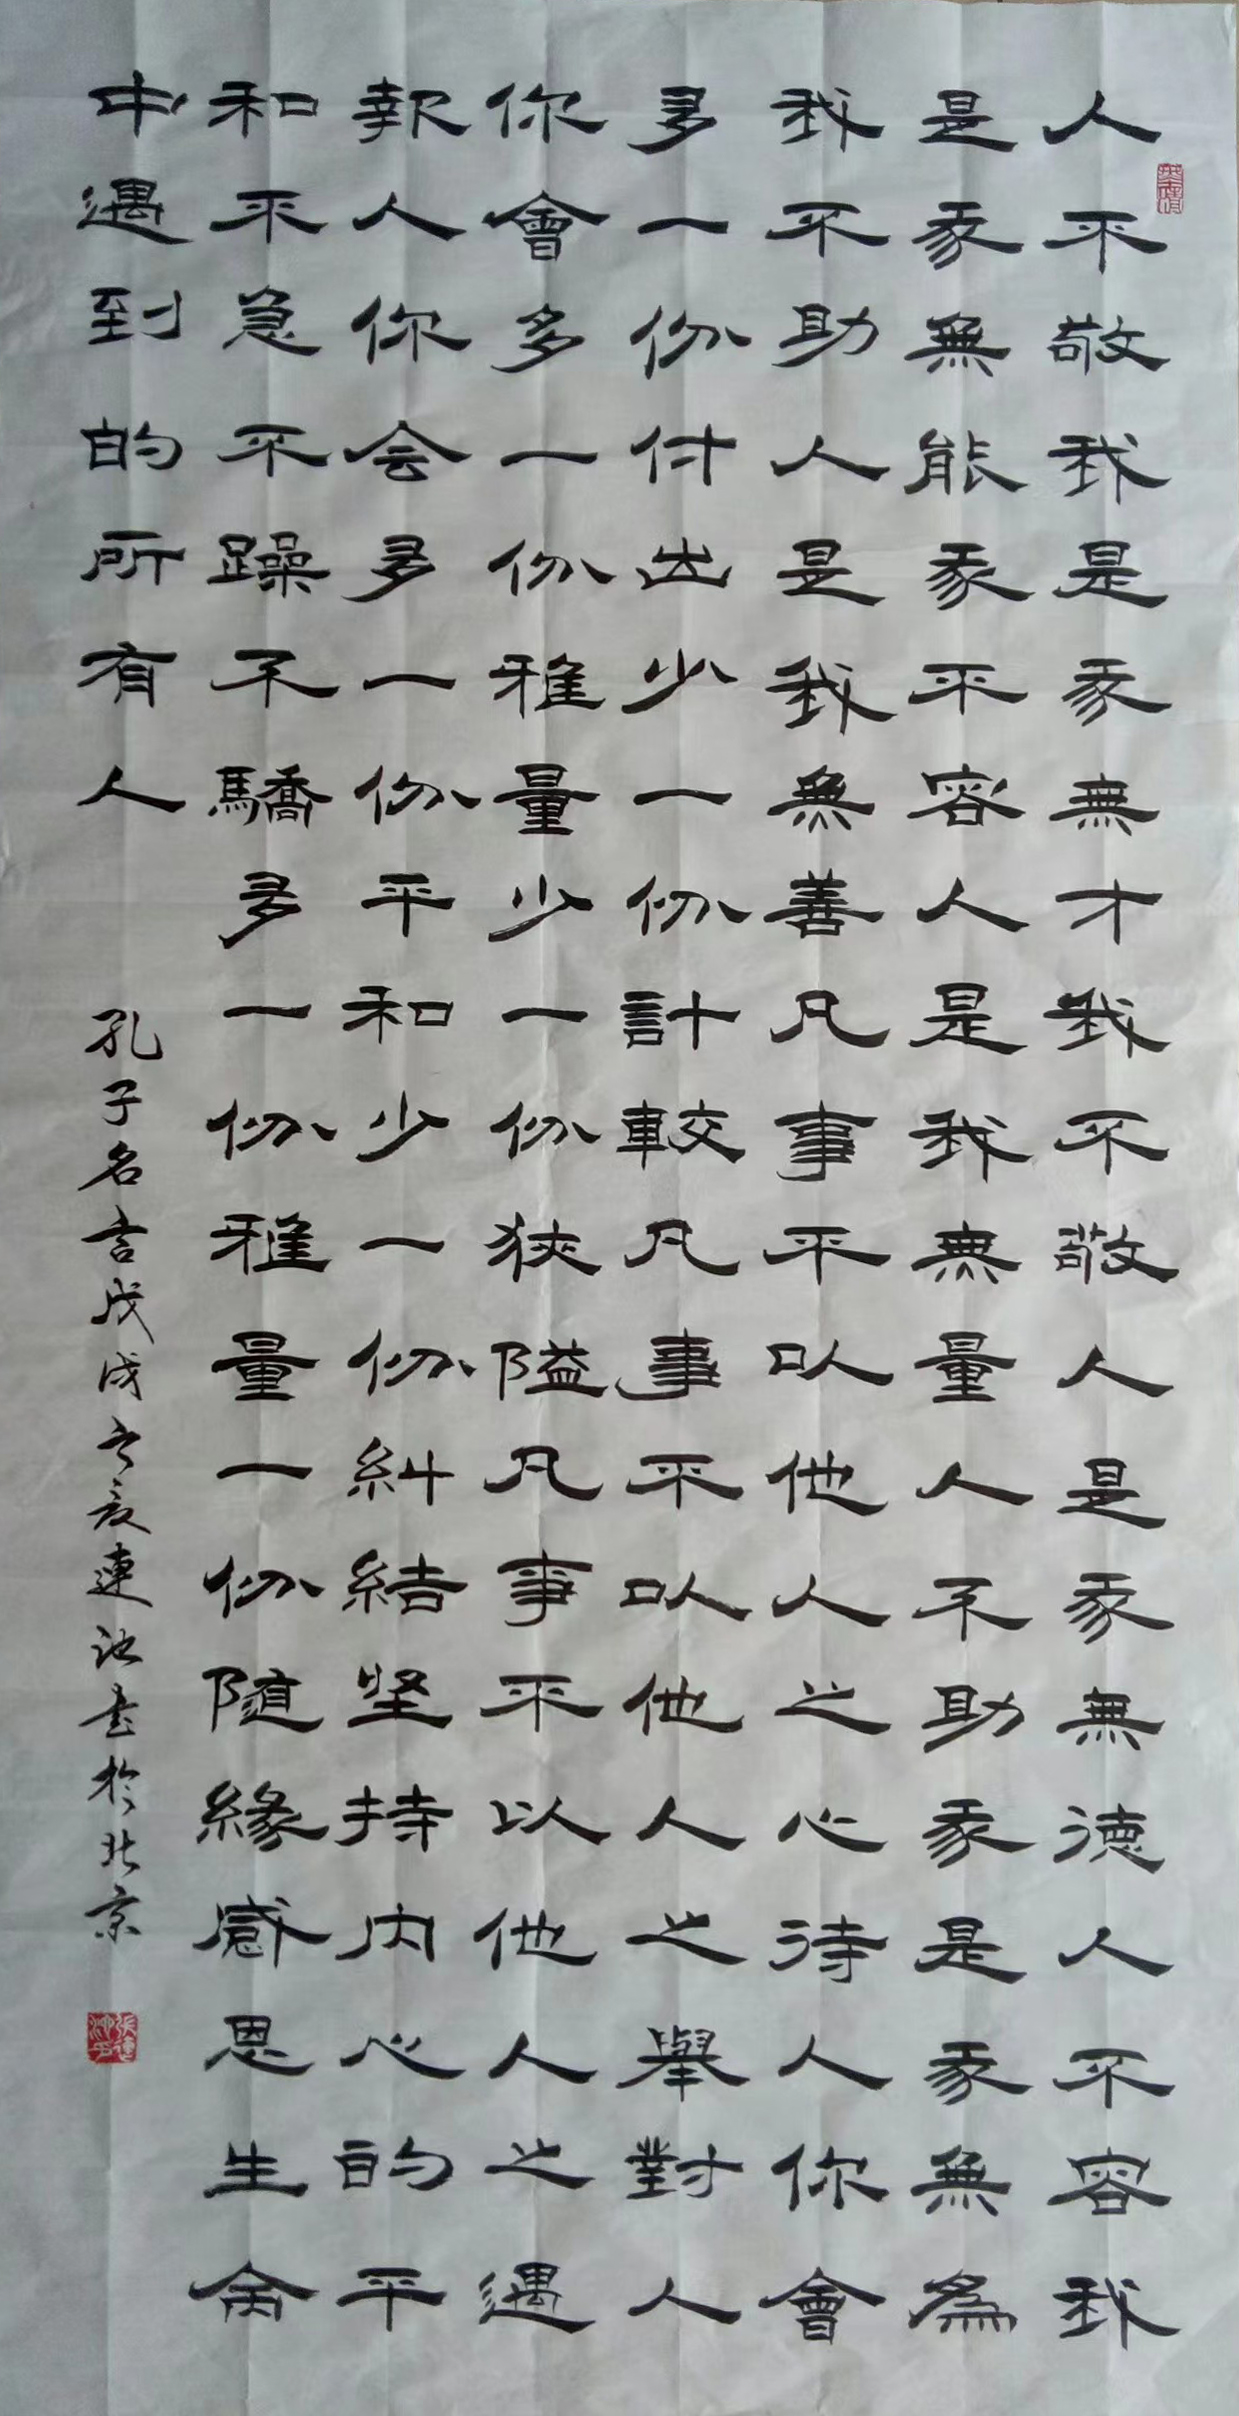 人不敬我是豕無才我不敬人是豕無德人不容我
是豕無能豕不容人是我無量人不助豕是豕無為
我不助人是我無善凡事不以他人之心待人你會
多一份付出少一份計較凡事不以他人之舉對人
你會多一份雅量少一份狹隘凡事不以他人之遇
報人你会多一份平和少一份糾結坚持内心的平
和不急不躁不驕多一份雅量一份随緣感恩生命
中遇到的所有人
孔子名言戊戌之夏連池书於北京